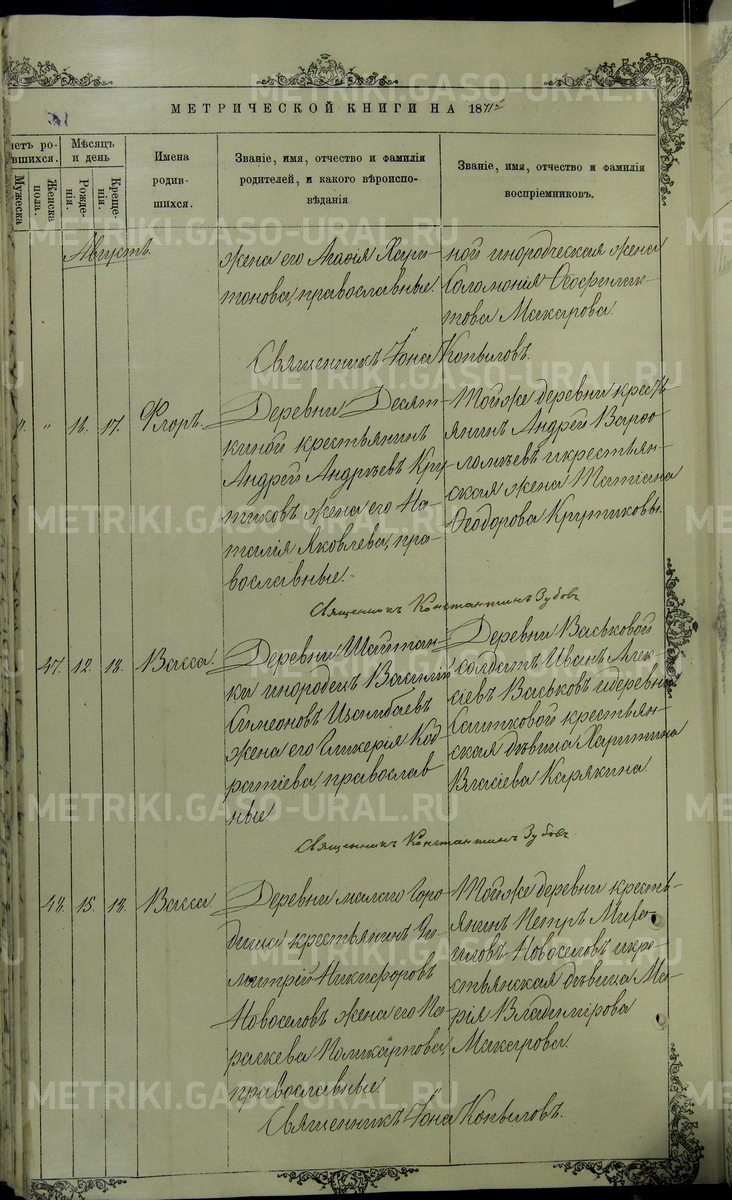 МЕТРИЧЕСКОЙ КНИГИ НА 1871
четъ ро-
вшихся.
Мужеска
Женска
пола.
Мѣсяцъ
и день
Рожде-
нія.
Креще-
нія.
Имена
родив-
шихся.
Званіе, имя, отчество и фамилія
родителей, и какого вѣроиспо-
вѣданія
Званіе, имя, отчество и фамилія
воспріемниковъ.
Августъ.
жена его Агафія Хари-
тонова, православные.
ной инородческая жена
Соломонія Феофилак-
това Макарова.
Священникъ Іона Копыловъ.
" 16. 17. Флоръ.
Деревни Десят-
киной крестьянинъ
Андрей Андреевъ Кру-
тиковъ жена его На-
талія Яковлева, пра-
вославные.
Тойже деревни крестъ-
янинъ Андрей Варфо-
ломѣевъ и крестьян-
ская жена Татіана
Феодорова Крутиковы.
Священникъ Константинъ Зубовъ
47. 12. 18. Васса.
Деревни Шайтан-
ки инородецъ Василій
Симеоновъ Исанбаевъ
жена его Гликерія Код-
ратіева, православ
ные.
Деревни Васьковой
солдатъ Иванъ Алек-
сіевъ Васьковъ и деревни
Ситковой крестьян-
ская дѣвица Харитина
Власіева Карякина.
Священникъ Константинъ Зубовъ
48. 15. 18. Васса.
Деревни малаго Горо-
дища крестьянинъ Ди-
митрій Никифоровъ
Новоселовъ жена его Па-
раскева Поликарпова,
православные.
Тойже деревни кресть-
янинъ Петръ Мирo-
новъ Новоселовъ и кре-
стьянская дѣвица Ма-
рія Владимірова
Макарова.
Священникъ Іона Копыловъ.
METRIKI.GASO-URAL.RU